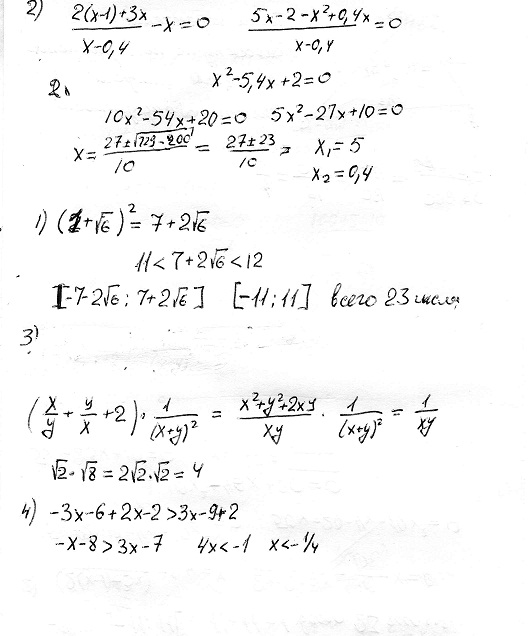 2) (2(x-1)+3x)/(x-0,4) - x = 0   (5x-2-x²+0,4x)/(x-0,4) = 0
x²-5,4x+2=0
2.
10x²-54x+20=0   5x²-27x+10=0
x = (27±√(729-200))/10 = (27±23)/10 =   x₁=5
x₂=0,4
1) (1+√6)² = 7+2√6
11<7+2√6<12
[-7-2√6; 7+2√6]   [-11;11] всего 23 числа
3)
(x/y + y/x + 2) · 1/(x+y)² = (x²+y²+2xy)/(xy) · 1/(x+y)² = 1/(xy)
√2·√8 = 2√2·√2 = 4
4) -3x-6+2x-2>3x-9+2
-x-8>3x-7   4x<-1   x<-1/4